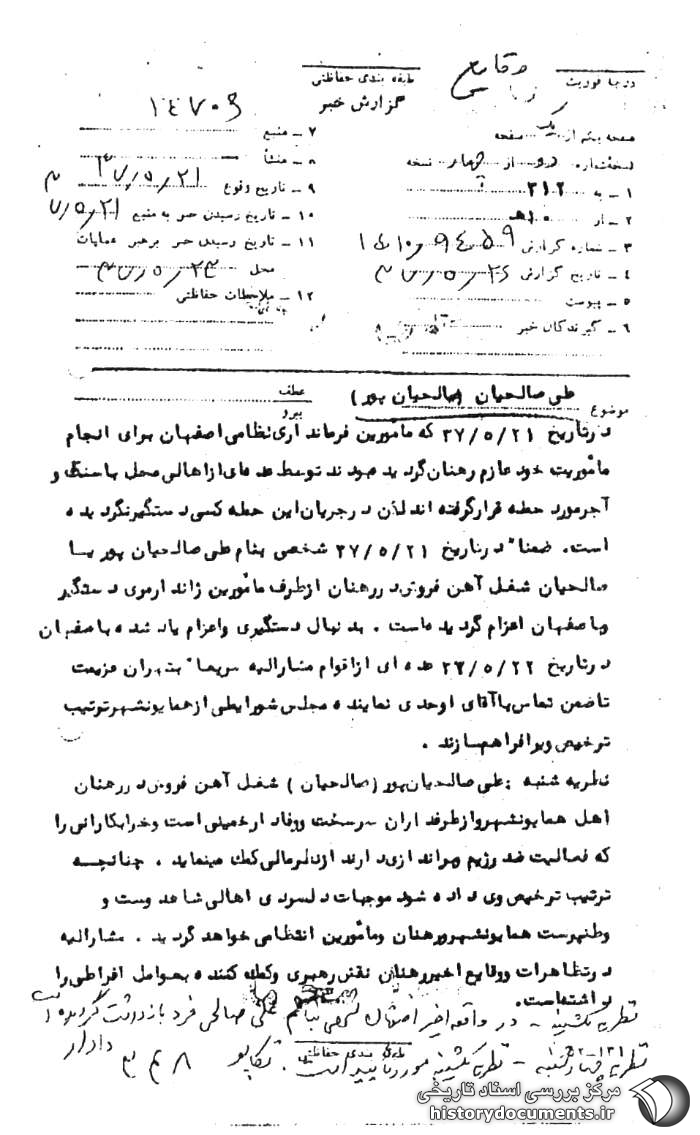 وقایع
درجه فوریت
طبقه بندی حفاظتی
گزارش خبر
صفحه یکم از یک صفحه
نسخه شماره دو از چهار نسخه
۱ ـ به ۳۱۲
۲ ـ از ۱۰ ه
۳ ـ شماره گزارش
۴ ـ تاریخ گزارش
۵ ـ پیوست
۶ ـ گیرندگان خبر
۷ ـ منبع
۸ ـ منشأ
۹ ـ تاریخ وقوع ۳۷/۵/۲۱
۱۰ ـ تاریخ رسیدن خبر به منبع
۱۱ ـ تاریخ رسیدن خبر برهبر عملیات
محل
۱۲ ـ ملاحظات حفاظتی
موضوع علی صالحیان (صالحیان پور)
عطف
پیرو
در تاریخ ۳۷/۵/۲۱ که مأمورین فرمانداری نظامی اصفهان برای انجام
مأموریت خود عازم رهنان گردیده بودند توسط عده ای از اهالی محل با سنگ و
آجر مورد حمله قرار گرفته اند لکن در جریان این حمله کسی دستگیر نگردیده
است. ضمناً در تاریخ ۳۷/۵/۲۱ شخصی بنام علی صالحیان پور یا
صالحیان شغل آهن فروش در رهنان از طرف مأمورین ژاندارمری دستگیر
و باصفهان اعزام گردیده است. بدنبال دستگیری و اعزام یاد شده باصفهان
در تاریخ ۳۷/۵/۲۲ عده ای از اقوام مشارالیه سریعاً بتهران عزیمت
تا ضمن تماس با آقای اوحدی نماینده مجلس شورا یطی از همایونشهر ترتیب
ترخیص ویرا فراهم سازند.
نظریه شنبه: علی صالحیان پور (صالحیان) شغل آهن فروش در رهنان
اهل همایونشهر و از طرفداران سرسخت و وفادار خمینی است و خرابکارانی را
که فعالیت ضد رژیم براندازی دارند از نظر مالی کمک مینماید. چنانچه
ترتیب ترخیص وی داده شود موجبات دلسردی اهالی شاهدوست و
وطنپرست همایونشهر و رهنان و مأمورین انتظامی خواهد گردید. مشارالیه
در تظاهرات و وقایع اخیر رهنان نقش رهبری و کمک کننده بعوامل افراطی را
بر داشته است.
نظریه یکشنبه ـ در وقایع اخیر اصفهان شخصی بنام علی صالحی فرد بازداشت گردیده است
نظریه چهارشنبه ـ نظریه یکشنبه مورد تایید است. تکاپو
دادار
طبقه بندی حفاظتی
مرکز بررسی اسناد تاریخی
historydocuments.ir